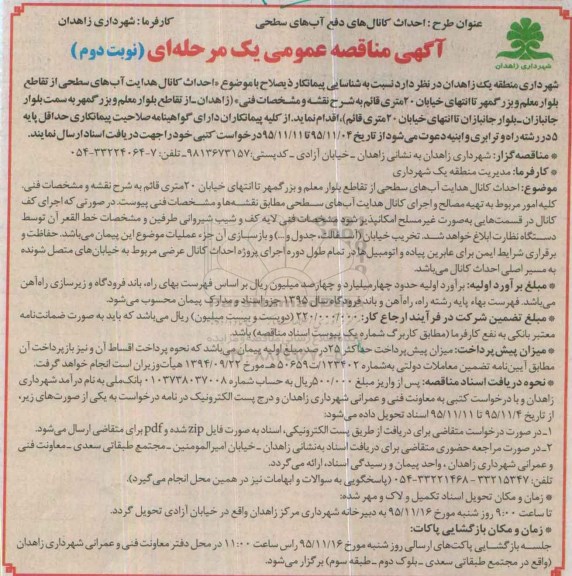 عنوان طرح: احداث کانال‌های دفع آب‌های سطحی
کارفرما: شهرداری زاهدان
شهرداری زاهدان
آگهی مناقصه عمومی یک مرحله‌ای (نوبت دوم)
شهرداری منطقه یک زاهدان در نظر دارد نسبت به شناسایی پیمانکار ذیصلاح با موضوع «احداث کانال هدایت آب‌های سطحی از تقاطع
بلوار معلم و بزرگمهر تا انتهای خیابان ۲۰متری قائم به شرح نقشه و مشخصات فنی» (زاهدان -از تقاطع بلوار معلم و بزرگمهر به سمت بلوار
جانبازان -بلوار جانبازان تا انتهای خیابان ۲۰متری قائم)، اقدام نماید. از کلیه پیمانکاران دارای گواهینامه صلاحیت پیمانکاری حداقل پایه
۵ در رشته راه و ترابری و ابنیه دعوت می‌شود از تاریخ ۹۵/۱۱/۰۴ تا ۹۵/۱۱/۱۱ درخواست کتبی خود را جهت دریافت اسناد ارسال نمایند.
* مناقصه‌گزار: شهرداری زاهدان به نشانی زاهدان - خیابان آزادی - کدپستی: ۹۸۱۳۶۷۳۱۵۷ - تلفن: ۷-۳۳۲۲۴۰۶۴-۰۵۴
* کارفرما: مدیریت منطقه یک شهرداری
موضوع: احداث کانال هدایت آب‌های سطحی از تقاطع بلوار معلم و بزرگمهر تا انتهای خیابان ۲۰متری قائم به شرح نقشه و مشخصات فنی.
کلیه امور مربوط به تهیه مصالح و اجرای کانال هدایت آب‌های سطحی مطابق نقشه‌ها و مشخصات فنی پیوست. در صورتی که اجرای کف
کانال در قسمت‌هایی به‌صورت غیر مسلح امکانپذیر شود مشخصات فنی لایه کف و شیب شیروانی طرفین و مشخصات خط القعر آن توسط
دستگاه نظارت ابلاغ خواهد شد. تخریب خیابان (آسفالت، جدول و...) و بازسازی آن جزء عملیات موضوع این پیمان می‌باشد. حفاظت و
برقراری شرایط ایمن برای عابرین پیاده و اتومبیل‌ها در تمام طول دوره اجرای پروژه احداث کانال عرضی مربوط به خیابان‌های متصل شونده
به مسیر اصلی احداث کانال می‌باشد.
* مبلغ برآورد اولیه: برآورد اولیه حدود چهارمیلیارد و چهارصد میلیون ریال بر اساس فهرست بهای راه، باند فرودگاه و زیرسازی راه‌آهن
می‌باشد. فهرست بهاء پایه رشته راه، راه‌آهن و باند فرودگاه سال ۱۳۹۵ جزو اسناد و مدارک پیمان محسوب می‌شود.
* مبلغ تضمین شرکت در فرآیند ارجاع کار: ۲۲۰/۰۰۰/۰۰۰ (دویست و بیست میلیون) ریال می‌باشد که باید به صورت ضمانت‌نامه
معتبر بانکی به نفع کارفرما (مطابق کاربرگ شماره یک پیوست اسناد مناقصه) باشد.
* میزان پیش‌پرداخت: میزان پیش‌پرداخت حداکثر ۲۵درصد مبلغ اولیه پیمان می‌باشد که نحوه پرداخت اقساط آن و نیز بازپرداخت آن
مطابق آیین‌نامه تضمین معاملات دولتی به‌شماره ۱۲۳۴۰۲/ت۵۰۶۵۹ هـ مورخ ۱۳۹۴/۰۹/۲۲ هیأت‌وزیران است انجام خواهد گرفت.
* نحوه دریافت اسناد مناقصه: پس از واریز مبلغ ۵۰۰/۰۰۰ریال به حساب شماره ۰۱۰۳۷۳۸۰۳۷۰۰۸ بانک‌ملی به نام درآمد شهرداری
زاهدان و با درخواست کتبی به معاونت فنی و عمرانی شهرداری زاهدان و درج پست الکترونیک در نامه درخواست به یکی از صورت‌های زیر،
از تاریخ ۹۵/۱۱/۴ تا ۹۵/۱۱/۱۱ اسناد تحویل داده می‌شود:
۱_در صورت درخواست متقاضی برای دریافت از طریق پست الکترونیکی، اسناد به صورت فایل zip شده و pdf برای متقاضی ارسال می‌شود.
۲_در صورت مراجعه حضوری متقاضی برای دریافت اسناد به‌نشانی زاهدان - خیابان امیرالمومنین - مجتمع طبقاتی سعدی - معاونت فنی
و عمرانی شهرداری زاهدان، واحد پیمان و رسیدگی اسناد، ارائه می‌گردد.
تلفن: ۳۳۲۱۵۳۴۷ - ۳۳۲۲۱۴۶۸-۰۵۴ (پاسخگویی به سوالات و ابهامات نیز در همین محل انجام می‌گیرد).
* زمان و مکان تحویل اسناد تکمیل و لاک و مهر شده:
تا ساعت ۹:۰۰ روز شنبه مورخ ۹۵/۱۱/۱۶ به دبیرخانه شهرداری مرکز زاهدان واقع در خیابان آزادی تحویل گردد.
* زمان و مکان بازگشایی پاکات:
جلسه بازگشایی پاکت‌های ارسالی روز شنبه مورخ ۹۵/۱۱/۱۶ راس ساعت ۱۱:۰۰ در محل دفتر معاونت فنی و عمرانی شهرداری زاهدان
(واقع در مجتمع طبقاتی سعدی - بلوک دوم - طبقه سوم) برگزار می‌شود.